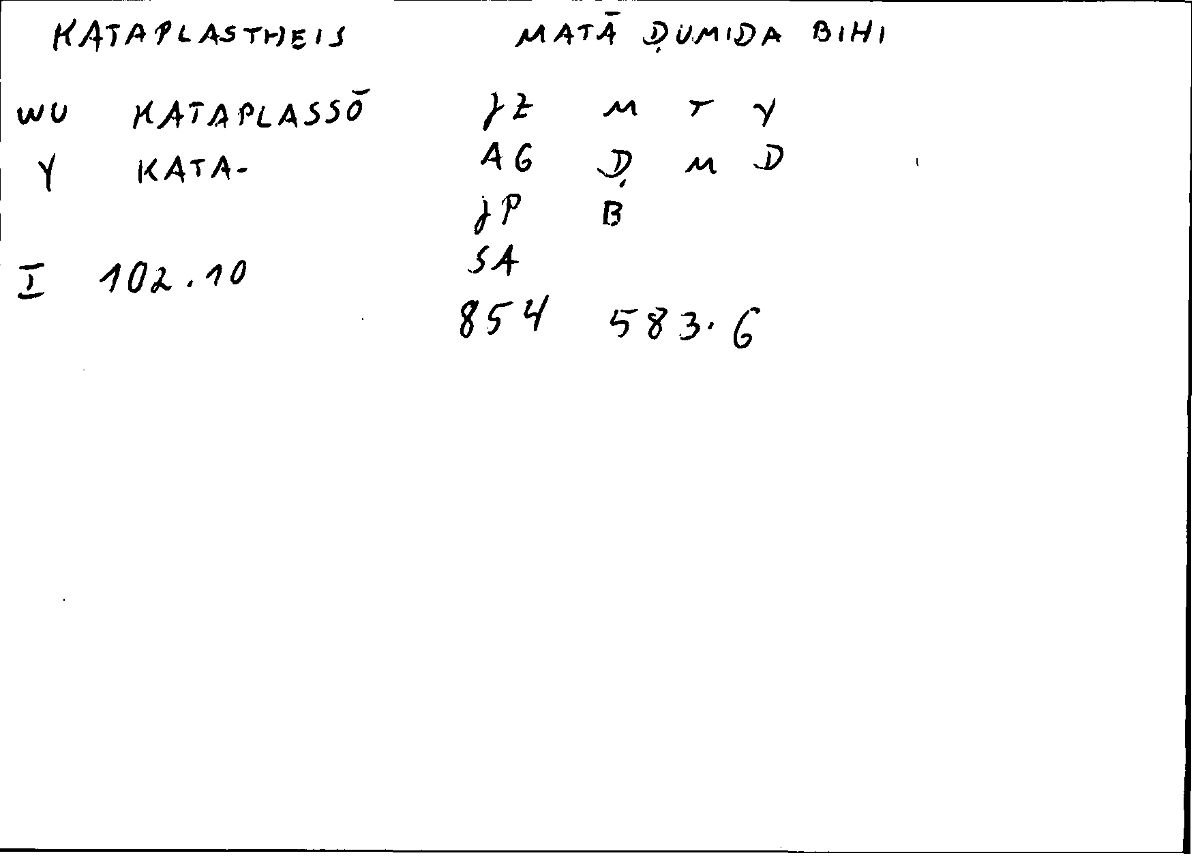 KATAPLASTHEIS MATĀ ḌUMIDA BIHI
WU KATAPLASSŌ JZ M T Y
Y KATA- AG Ḍ M D
JP B
I 102.10 SA
854 583.6